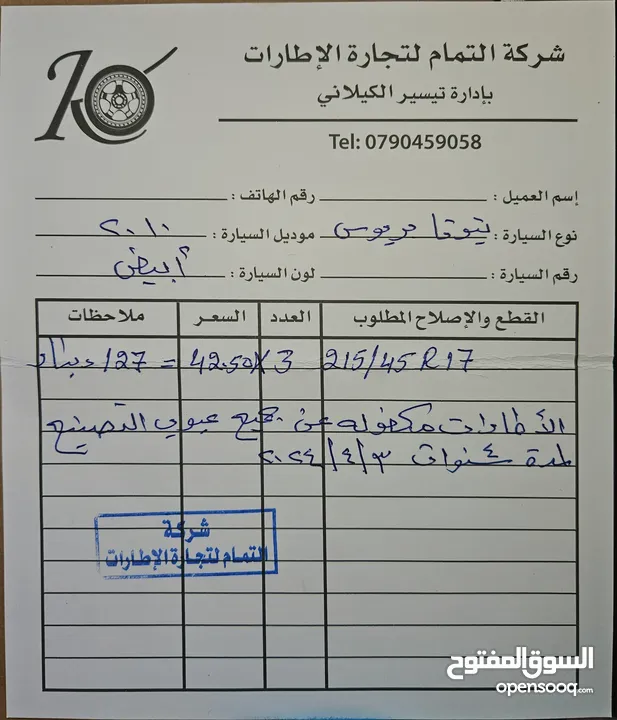 شركة التمام لتجارة الإطارات
بإدارة تيسير الكيلاني
Tel: 0790459058
إسم العميل : رقم الهاتف :
نوع السيارة : تيوتا بريوس موديل السيارة : ٢٠١٠
رقم السيارة : لون السيارة : أبيض
القطع والإصلاح المطلوب العدد السعر ملاحظات
215/45 R17 3 X 42.50 = 127/دينار
الأطارات مكفوله عن جميع عيوب التصنيع
لمدة ٤ سنوات ٢٠٢٤/٤/٣
شركة
التمام لتجارة الإطارات
السوق المفتوح
opensooq.com